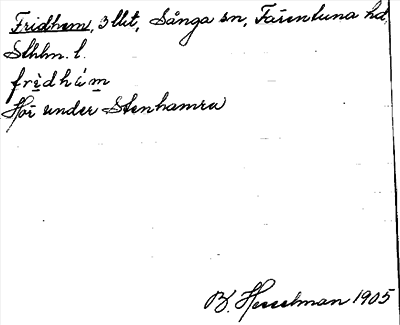 Fridhem, 3 lht, Sånga sn, Färentuna hd,
Sthlm. l.
frìdhæ̀m
Hör under Stenhamra
B. Hesselman 1905